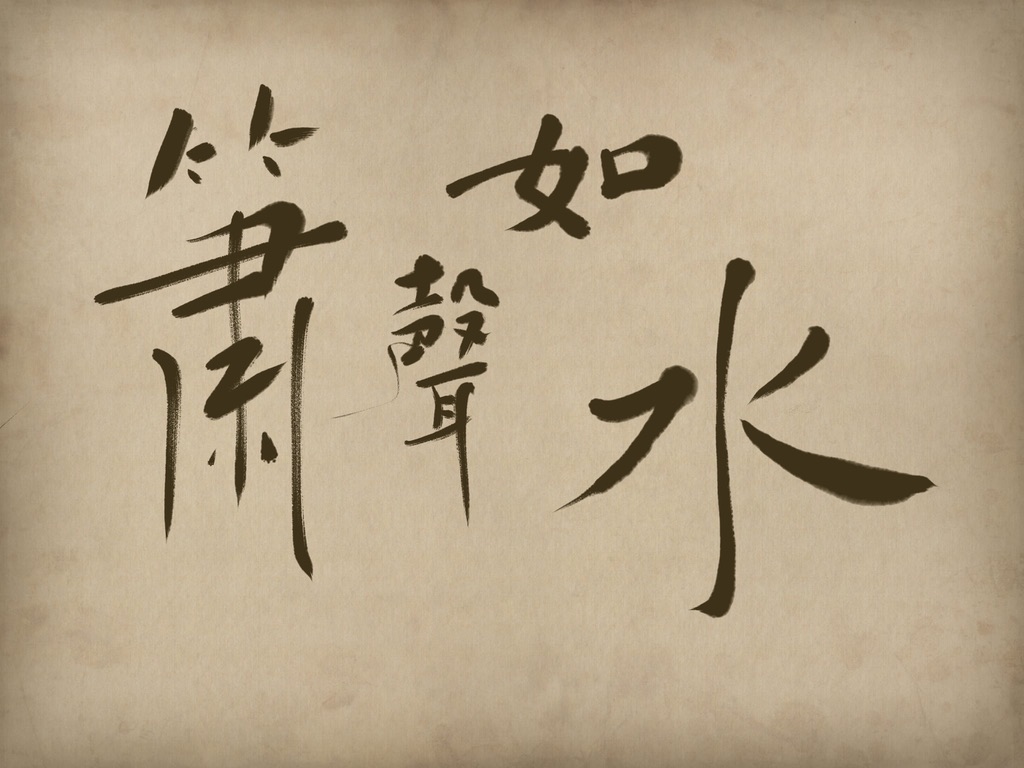 簫聲如水